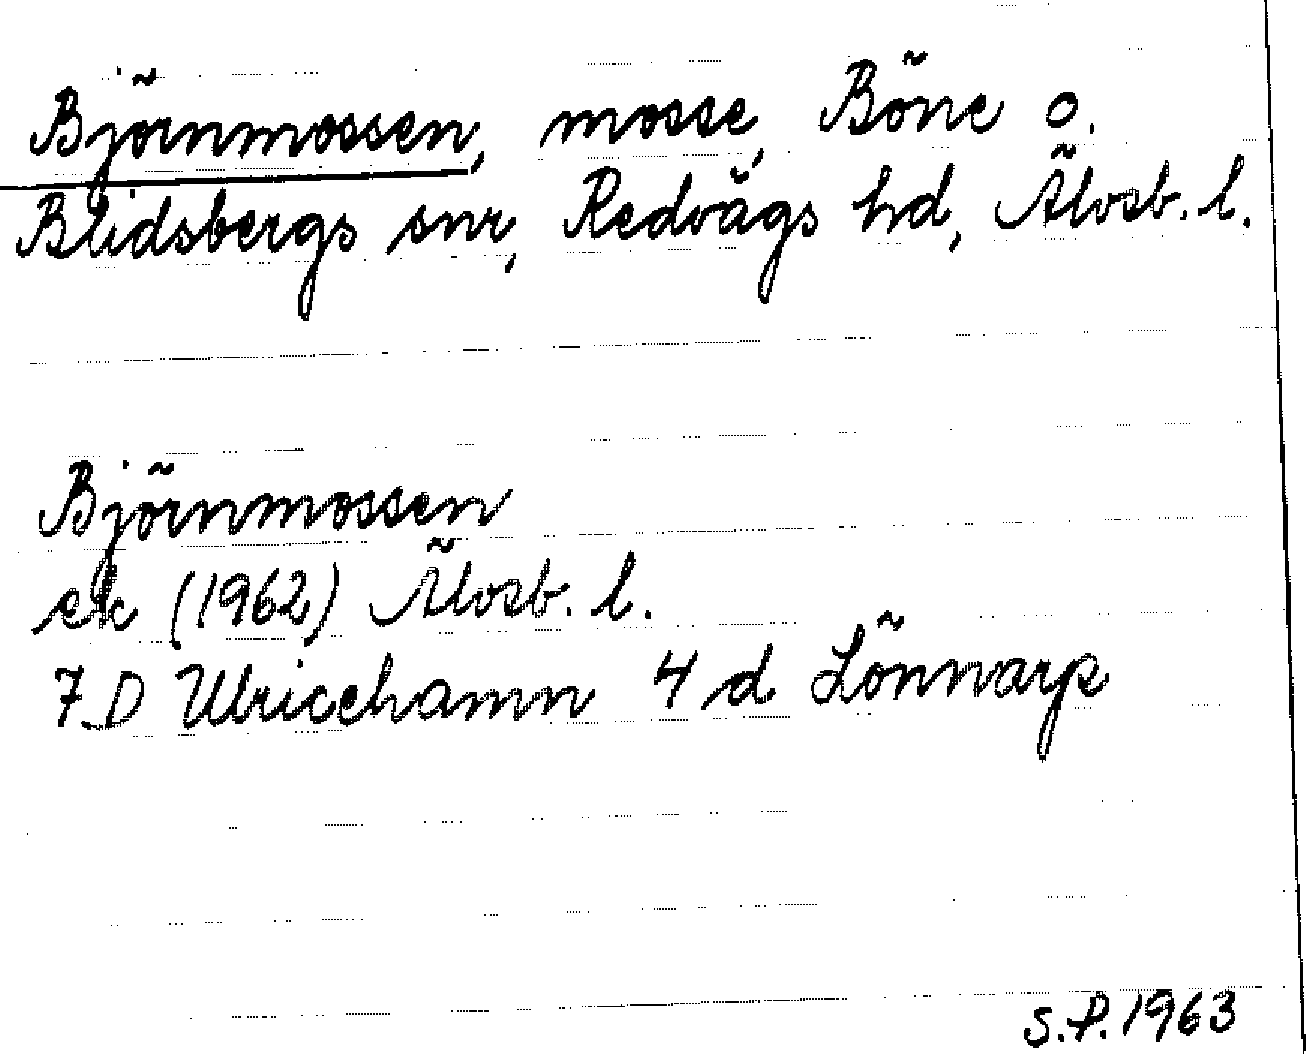 Björnmossen, mosse, Böne o.
Blidsbergs snr, Redvägs hd, Älvsb. l.
Björnmossen
ek (1962) Älvsb. l.
7 D Ulricehamn 4 d Lönnarp
S.P. 1963